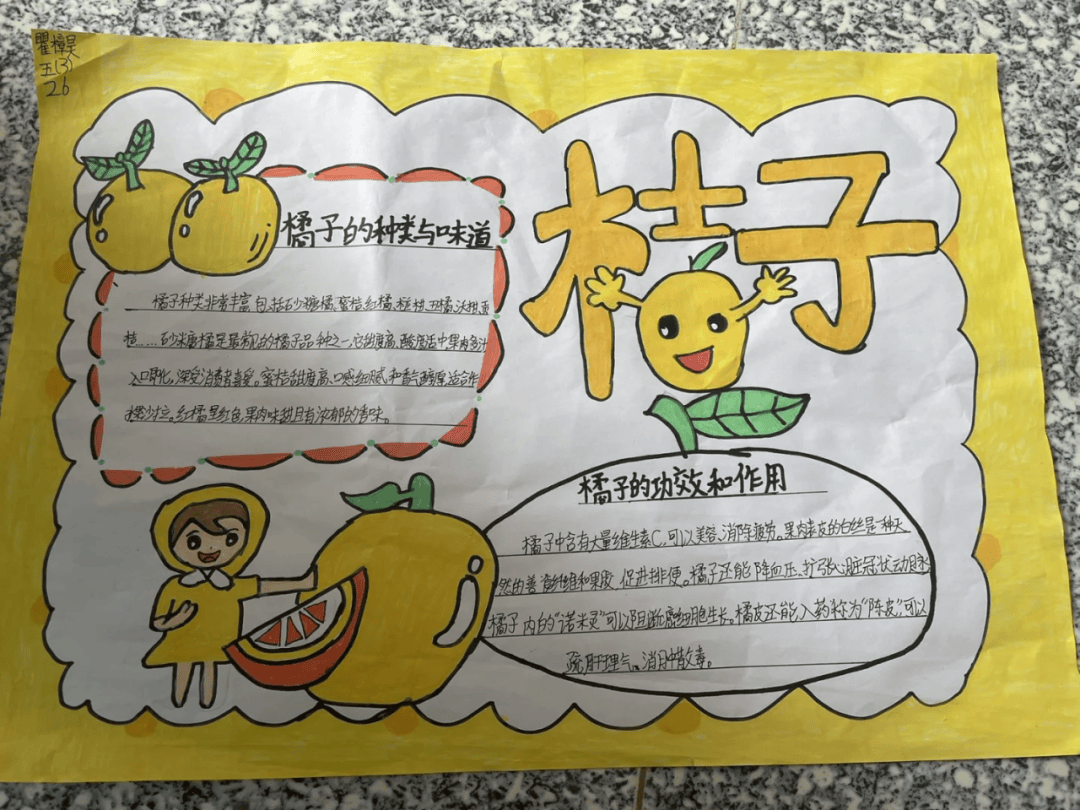 瞿樟昊
五(3)
26
桔子
橘子的种类与味道
橘子种类非常丰富,包括砂糖橘,蜜桔,红橘,椪柑,丑橘,沃柑,贡
桔……砂糖橘是最常见的橘子品种之一,它甜度高,酸度适中果肉多汁
入口即化,深受消费者喜爱。蜜桔甜度高、口感细腻,和香气醇厚适合作
红橘呈红色果肉味甜且有浓郁的香味。
橘子的功效和作用
橘子中含有大量维生素C,可以美容、消除疲劳。果肉表皮的白丝是一种天
然的膳食纤维和果胶,促进排便。橘子还能降血压、扩张心脏冠状动脉
橘子内的“诺米灵”可以阻断癌细胞生长。橘皮还能入药称为“陈皮”,可以
疏肝理气、消肿散毒。